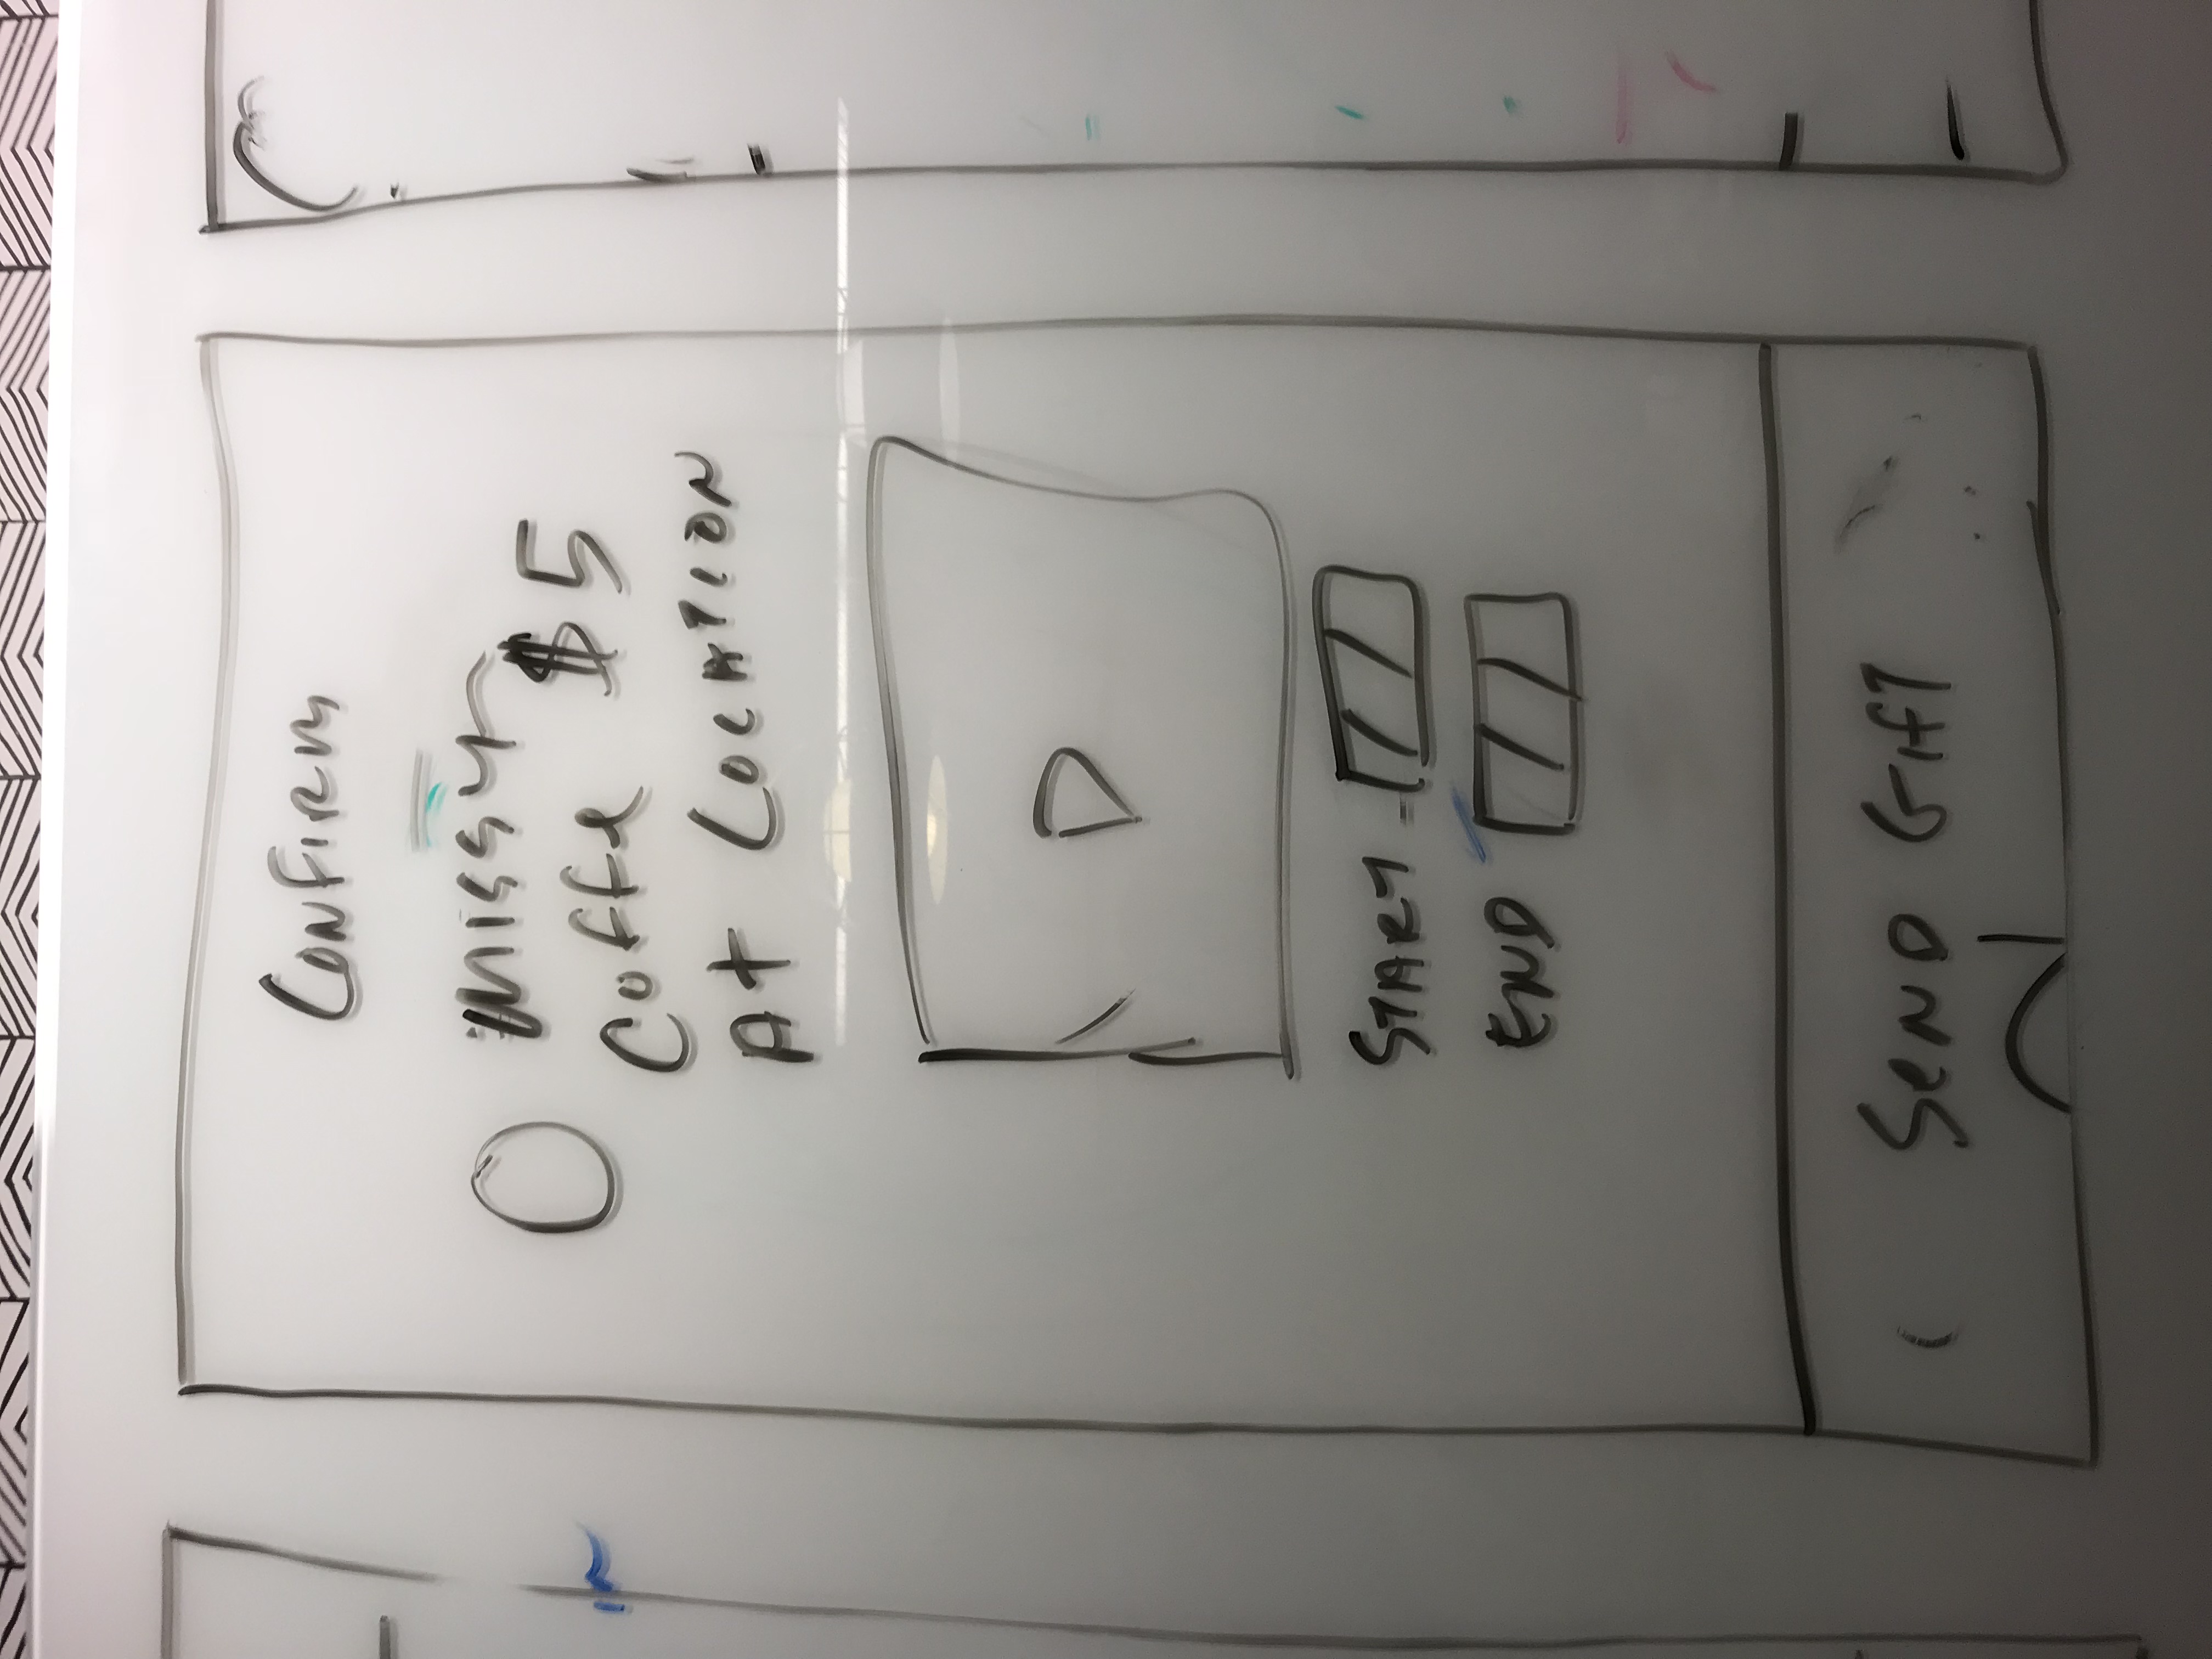 Confirm
Missy
Coffe $5
At Location
Start
End
Send Gift